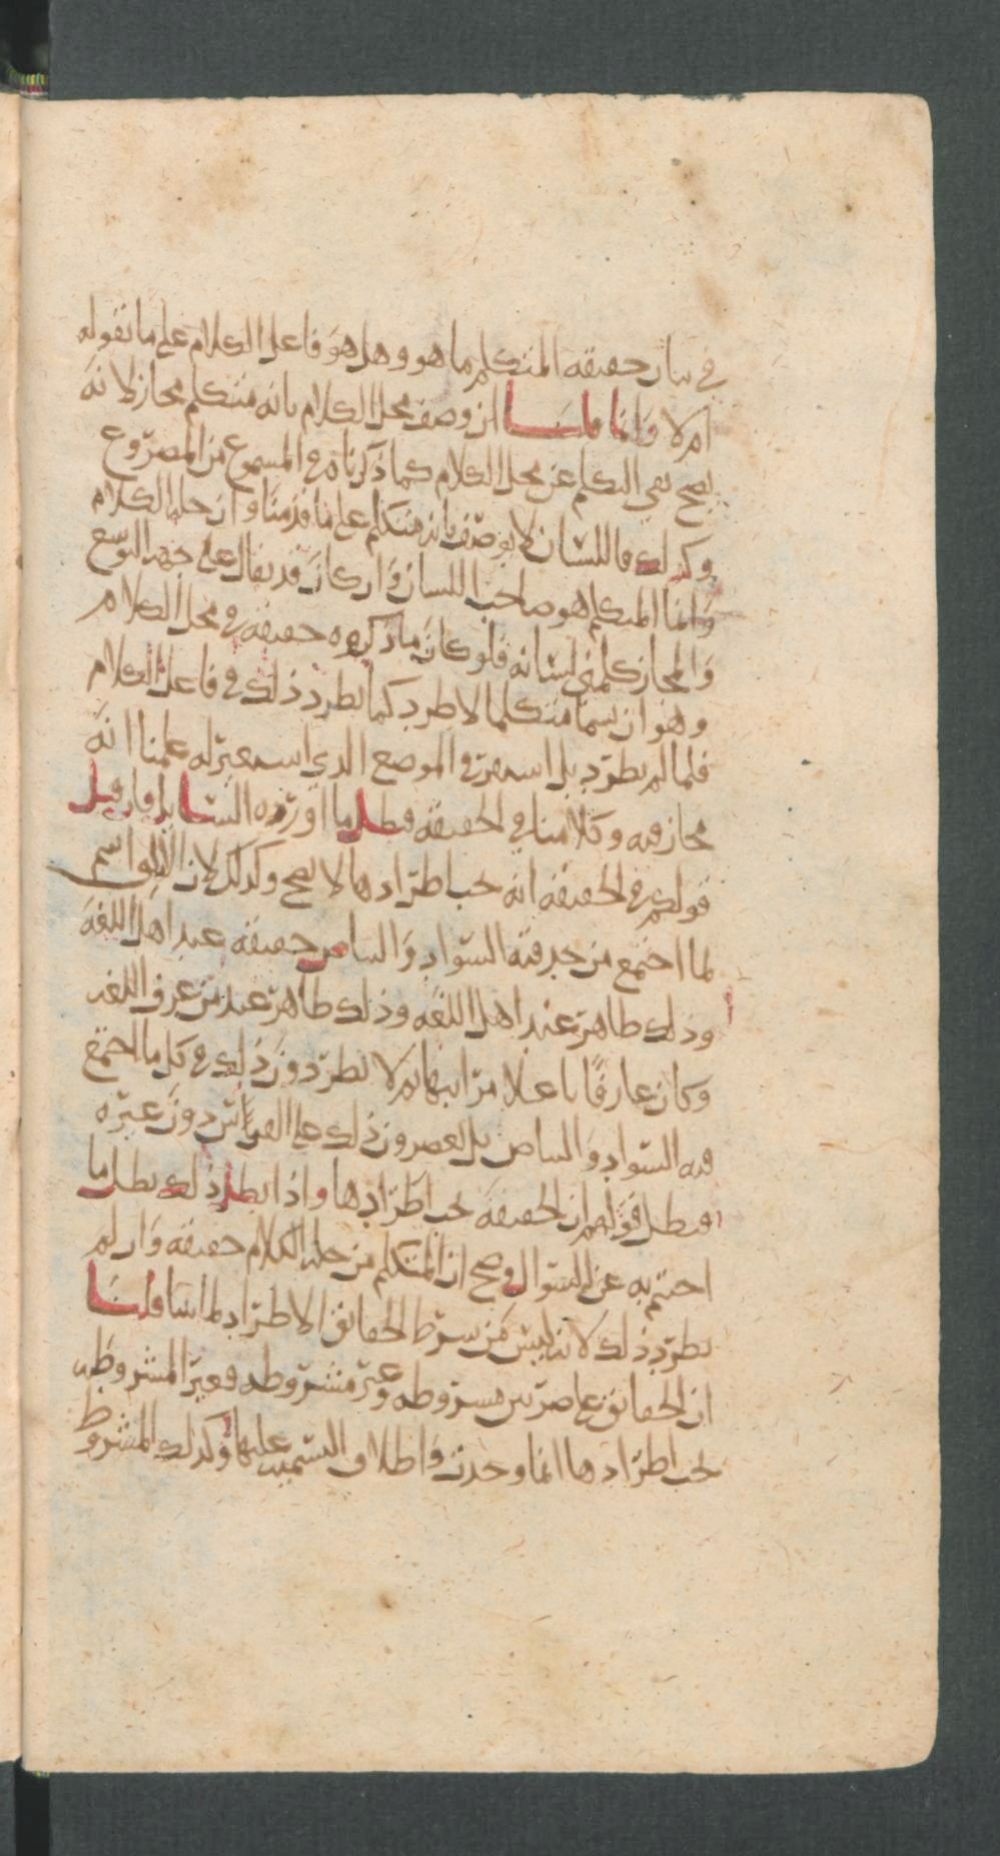 في بيان حقيقة المتكلم ما هو وهل هو فاعل الكلام على ما نقوله
ام لا وانما قلنا ان وصف محل الكلام بانه متكلم مجاز لانه
يصح نفي التكلم عن محل الكلام كما ذكرناه في المسموع من المصروع
وكذلك فاللسان لا يوصف بانه متكلم على ما قدمنا وان حله الكلام
وانما المتكلم هو صاحب اللسان وان كان قد يقال على جهة التوسع
والمجاز كلمني لسانه فلو كان ما ذكروه حقيقة في محل الكلام
وهو ان يسما متكلما لاطرد كما يطرد ذلك في فاعل الكلام
فلما لم يطرد بل استمر في الموضع الذي علمنا انه
مجاز فيه وكلامنا في الحقيقة فبطل ما اورده السايل فان قيل
قولكم في الحقيقة انه يجب اطرادها لا يصح وكذلك لان الابلق اسم
لما اجتمع من فيه السواد والبياض حقيقة عند اهل اللغة
وذلك ظاهر عند اهل اللغة وذلك ظاهر عند من عرف اللغه
وكان عارفًا باعلا مراتبها ثم لا يطردون ذلك في كل ما اجتمع
فيه السواد والبياض بل يقصرون ذلك على دون غيره
فبطل قولهم ان الحقيقة يجب اطرادها واذا بطل ذلك بطل ما
به عن السوال وصح ان المتكلم من حله الكلام حقيقة وان لم
يطرد ذلك لانه ليس من شرط الحقائق الاطراد لما بينا قلنا
ان الحقائق على ضربين مشروطه وغير مشروطه فغير المشروطه
يجب اطرادها اينما وجدت واطلاق التسمية عليها وكذلك المشروط